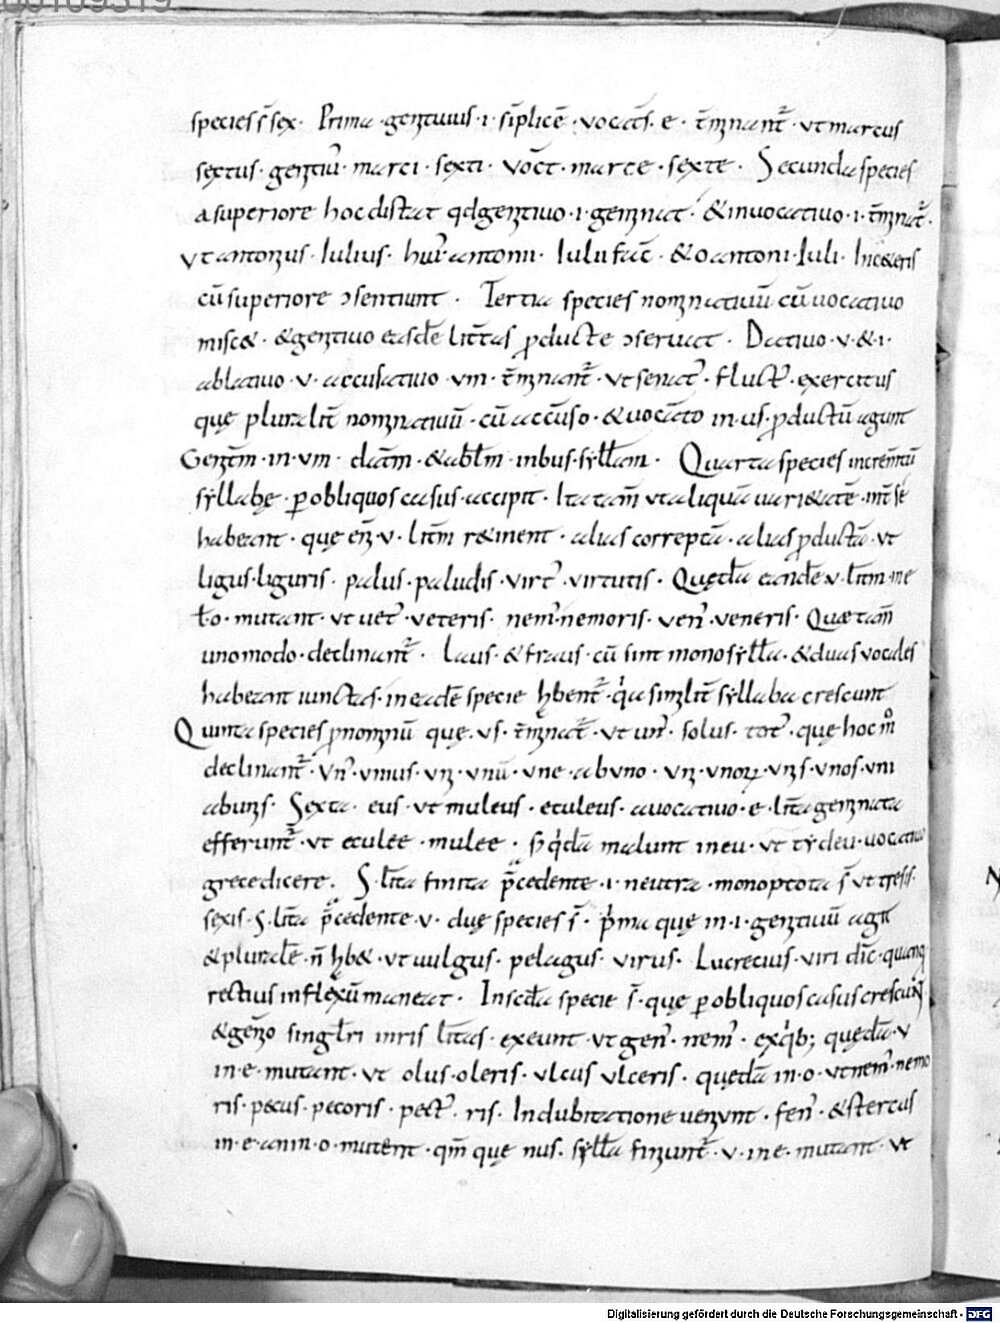 species s̄ sex. Prima genitiuus · i · sīplicē · vocatꝰ · e · t̄minant᷑ · vt marcus
sextus · genitiū · marci · sexti · vōct · marce · sexte · Secunda species
a superiore hoc distat qd genitiuo · i · geminat · & in uocatiuo · i · t̄minat᷑ ·
vt antonius · Iulius · huiꝰ antonii · Iulii fač · & o antoni · Iuli · In ceteris
cū superiore ɔsentiunt · Tertia species nominatiuū cū uocatiuo
misc& · & genitiuo easdē litt̄as ꝓducte ɔseruat · Datiuo · v · & · i ·
ablatiuo · v · accusatiuo · vm · t̄minant᷑ · vt senatꝰ · fluctꝰ · exercitus
quę pluralit̄ nominatiuū · cū accūso · & uocāto in · us · ꝓductū agunt
Genit̄m · in · vm · dat̄m · & abl̄m · in bus · syll̄am · Quarta species incrēmtū
syllabę · ꝑ obliquos casus · accipit · Ita tam̄ vt aliquā uari&atē · int̄ se
habeant · quę eni̅ · v · lit̄m r&inent · alias correptā · alias ꝓductā · vt
ligus · liguris · palus · paludis · virtꝰ · virtutis · Quędā eandē v · lit̄m · in e
t̄ · o · mutant · vt uetꝰ · veteris · nemꝰ · nemoris · venꝰ · veneris · Quae tam̄
uno modo · declinant᷑ · Laus · & fraus · cū sint monosyll̄a · & duas vocales
habeant iunctas · in eadē specie hn̄bent᷑ · q'a similit̄ syllaba crescunt
Quinta species ꝓnominū quę · vs · t̄minat᷑ · vt unꝰ · solus · totꝰ · quę hoc m̊
declinant᷑ · vnꝰ · vnius · vni · vnū · vne · ab vno · vni · vnoꝝ · vnis · vnos · vni
ab unis · Sexta · eus · vt muleus · eculeus · a uocatiuo · e · lit̄a geminata
efferunt᷑ · vt eculee · mulee · s; q'dā malunt in eu · vt tydeu · uocatiuo
grece dicere · S · lit̄a finita p̄cedente · i · neutra · monoptota s̄ vt tresis ·
sexis · S · lit̄a p̄cedente · v · duę species s̄ · p'ma quę in · i · genitiuū agit
& pluralē · n̄ hab& · vt uulgus · pelagus · virus · Lucrecius · viri dic̄ · quanq
rectius inflexū maneat · In scd̄a specie s̄ · quę ꝑ obliquos casus crescunt
& genit̄o singl̄ri in ris lit̄as · exeunt · vt genꝰ · nemꝰ · ex q'b; quędā · v
in · e · mutant · vt olus · oleris · vlcus vlceris · quędā in · o · vt nemꝰ · nemo
ris · pecus · pecoris · pectꝰ · ris · In dubitatione ueniunt · fenꝰ · & stercus
in · e · an in · o · mutent · qm̄ quę nus · syll̄a finiunt᷑ · v · in e · mutant · vt
Digitalisierung gefördert durch die Deutsche Forschungsgemeinschaft - DFG